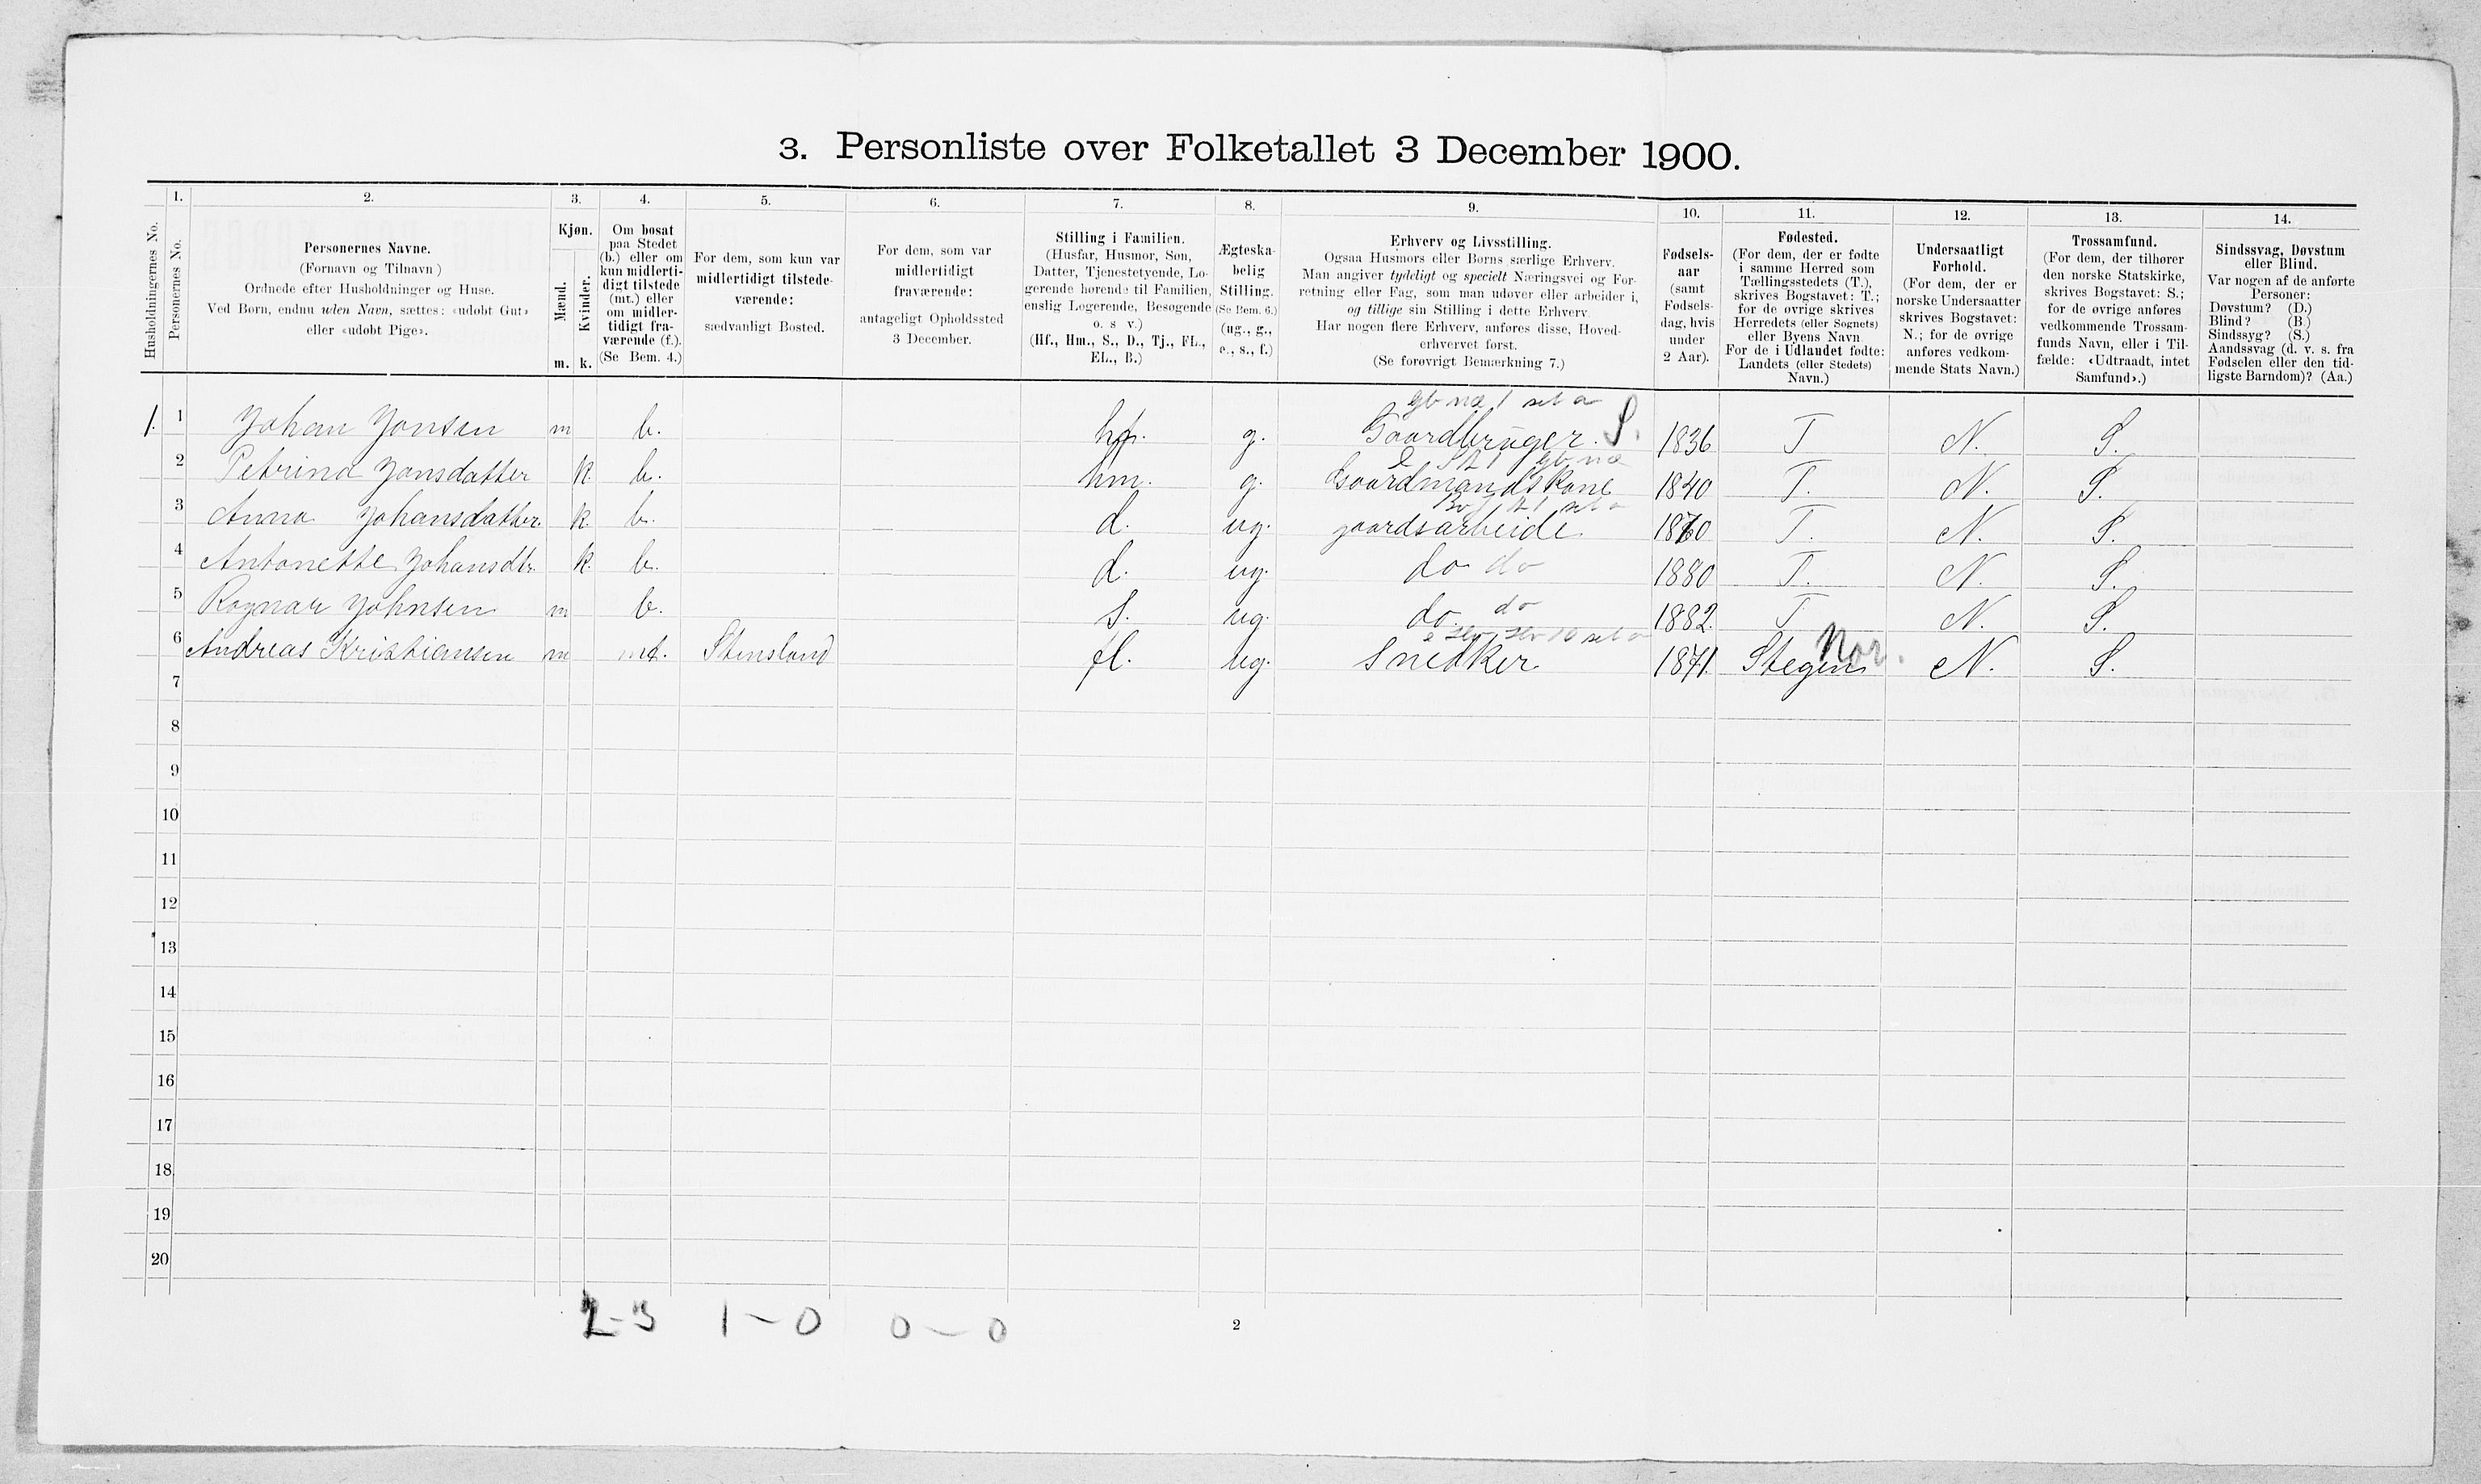 3. Personliste over Folketallet 3 December 1900.
Husholdningernes No.
1.
Personernes No.
2.
Personernes Navne.
(Fornavn og Tilnavn)
Ordnede efter Husholdninger og Huse.
Ved Børn, endnu uden Navn, sættes: «udøbt Gut»
eller «udøbt Pige».
3.
Kjøn.
Mænd.
Kvinder.
m. k.
4.
Om bosat
paa Stedet
(b.) eller om
kun midlerti-
digt tilstede
(mt.) eller
om midler-
tidigt fra-
værende (f.).
(Se Bem. 4.)
5.
For dem, som kun var
midlertidigt tilstede-
værende:
sædvanligt Bosted.
6.
For dem, som var
midlertidigt
fraværende:
antageligt Opholdssted
3 December.
7.
Stilling i Familien.
(Husfar, Husmor, Søn,
Datter, Tjenestetyende, Lo-
gerende hørende til Familien,
enslig Logerende, Besøgende
o. s v.)
(Hf., Hm., S., D., Tj., FL.,
EL., B.)
8.
Ægteska-
belig
Stilling.
(Se Bem. 6.)
(ug., g.,
e., s., f.)
9.
Erhverv og Livsstilling.
Ogsaa Husmors eller Børns særlige Erhverv.
Man angiver tydeligt og specielt Næringsvei og For-
retning eller Fag, som man udøver eller arbeider i,
og tillige sin Stilling i dette Erhverv.
Har nogen flere Erhverv, anføres disse, Hoved-
erhvervet først.
(Se forøvrigt Bemærkning 7.)
10.
Fødsels-
aar
(samt
Fødsels-
dag, hvis
under
2 Aar).
11.
Fødested.
(For dem, der er fødte
i samme Herred som
Tællingsstedets (T.),
skrives Bogstavet: T.;
for de øvrige skrives
Herredets (eller Sognets)
eller Byens Navn.
For de i Udlandet fødte:
Landets (eller Stedets)
Navn.)
12.
Undersaatligt
Forhold.
(For dem, der er
norske Undersaatter
skrives Bogstavet:
N.; for de øvrige
anføres vedkom-
mende Stats Navn.)
13.
Trossamfund.
(For dem, der tilhører
den norske Statskirke,
skrives Bogstavet: S.;
for de øvrige anføres
vedkommende Trossam-
funds Navn, eller i Til-
fælde: «Udtraadt, intet
Samfund».)
14.
Sindssvag, Døvstum
eller Blind.
Var nogen af de anførte
Personer:
Døvstum? (D.)
Blind? (B.)
Sindssyg? (S.)
Aandssvag (d. v. s. fra
Fødselen eller den tid-
ligste Barndom)? (Aa.)
1. 1 Johan Jonsen m b. hf. g. Gaardbruger. S. 1836 T N. S.
2 Petrina Jonsdatter k. b. hm. g. Gaardmandskone 1840 T. N. S.
3 Anna Johansdatter. k. b. d. ug. gaardsarbeide. 1870 T. N. S.
4 Antonette Johansdtr. k. b. d. ug. do do 1880 T. N. S.
5 Ragnar Johnsen m b. s. ug. do. do 1882. T N. S.
6 Andreas Kristiansen m mt. Stensland fl. ug. Snedker. 1871. Stegen Nor. N. S.
7
8
9
10
11
12
13
14
15
16
17
18
19
20
2-3 1-0 0-0
2